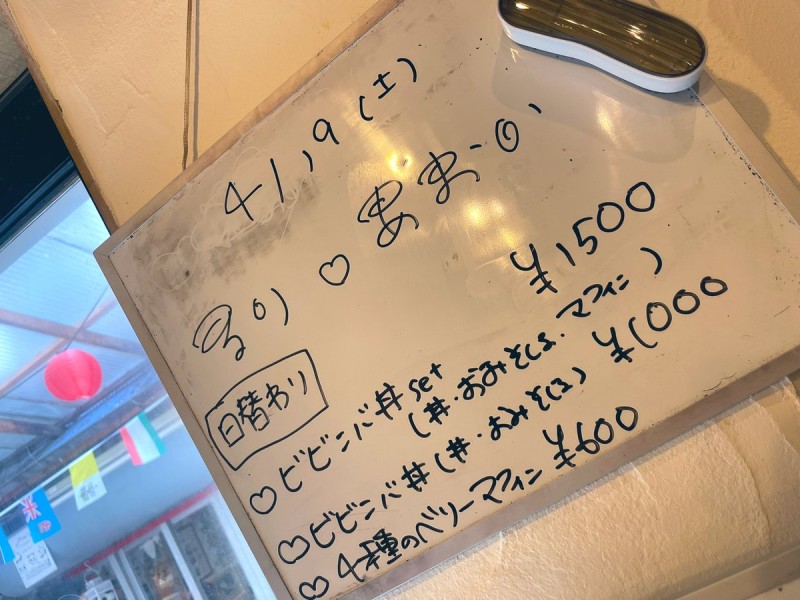 4/19(土)
るり ♡
日替わり
♡ビビンバ丼set ¥1500
(丼・おみそしる・マフィン)
♡ビビンバ丼(丼・おみそしる) ¥1000
♡4種のベリーマフィン ¥600